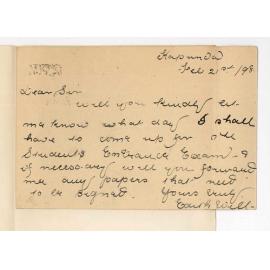 Kapunda
Feb 21st/98
Dear Sir
Will you kindly let
me know what day I shall
have to come up for
Students Entrance Exam &
if necessary will you forward
me any papers that need
to be signed. Yours truly